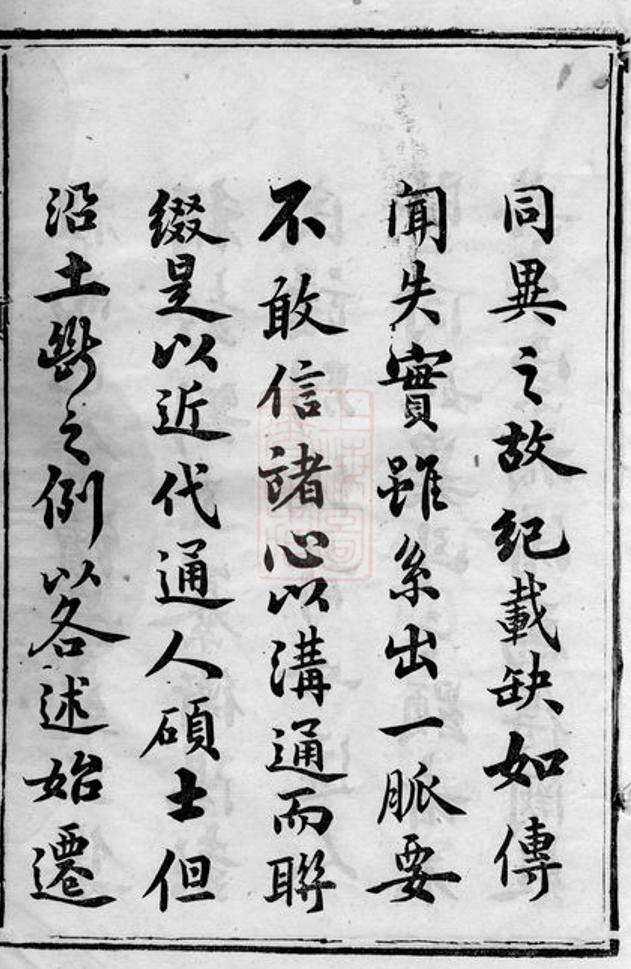 同異之故紀載缺如傳
聞失實雖系出一脈要
不敢信諸心以溝通而聯
綴是以近代通人碩士但
沿土斷之例以各述始遷